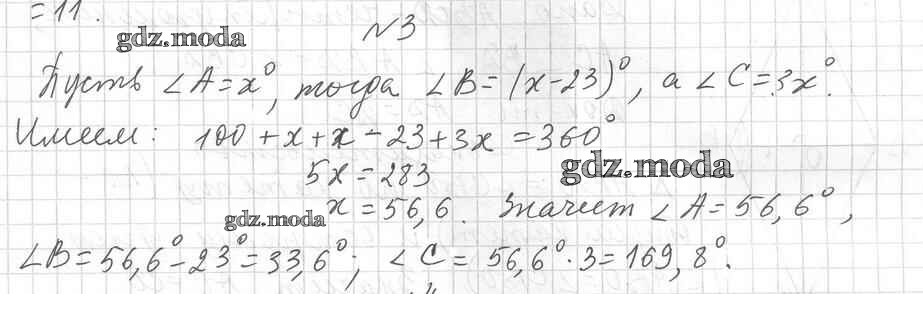 =11.
gdz.moda
№3
Пусть ∠A=x°, тогда ∠B=(x-23)°, а ∠C=3x°.
Имеем: 100+x+x-23+3x=360°
gdz.moda
5x=283
x=56,6. Значит ∠A=56,6°,
gdz.moda
∠B=56,6°-23°=33,6°; ∠C= 56,6°·3=169,8°.